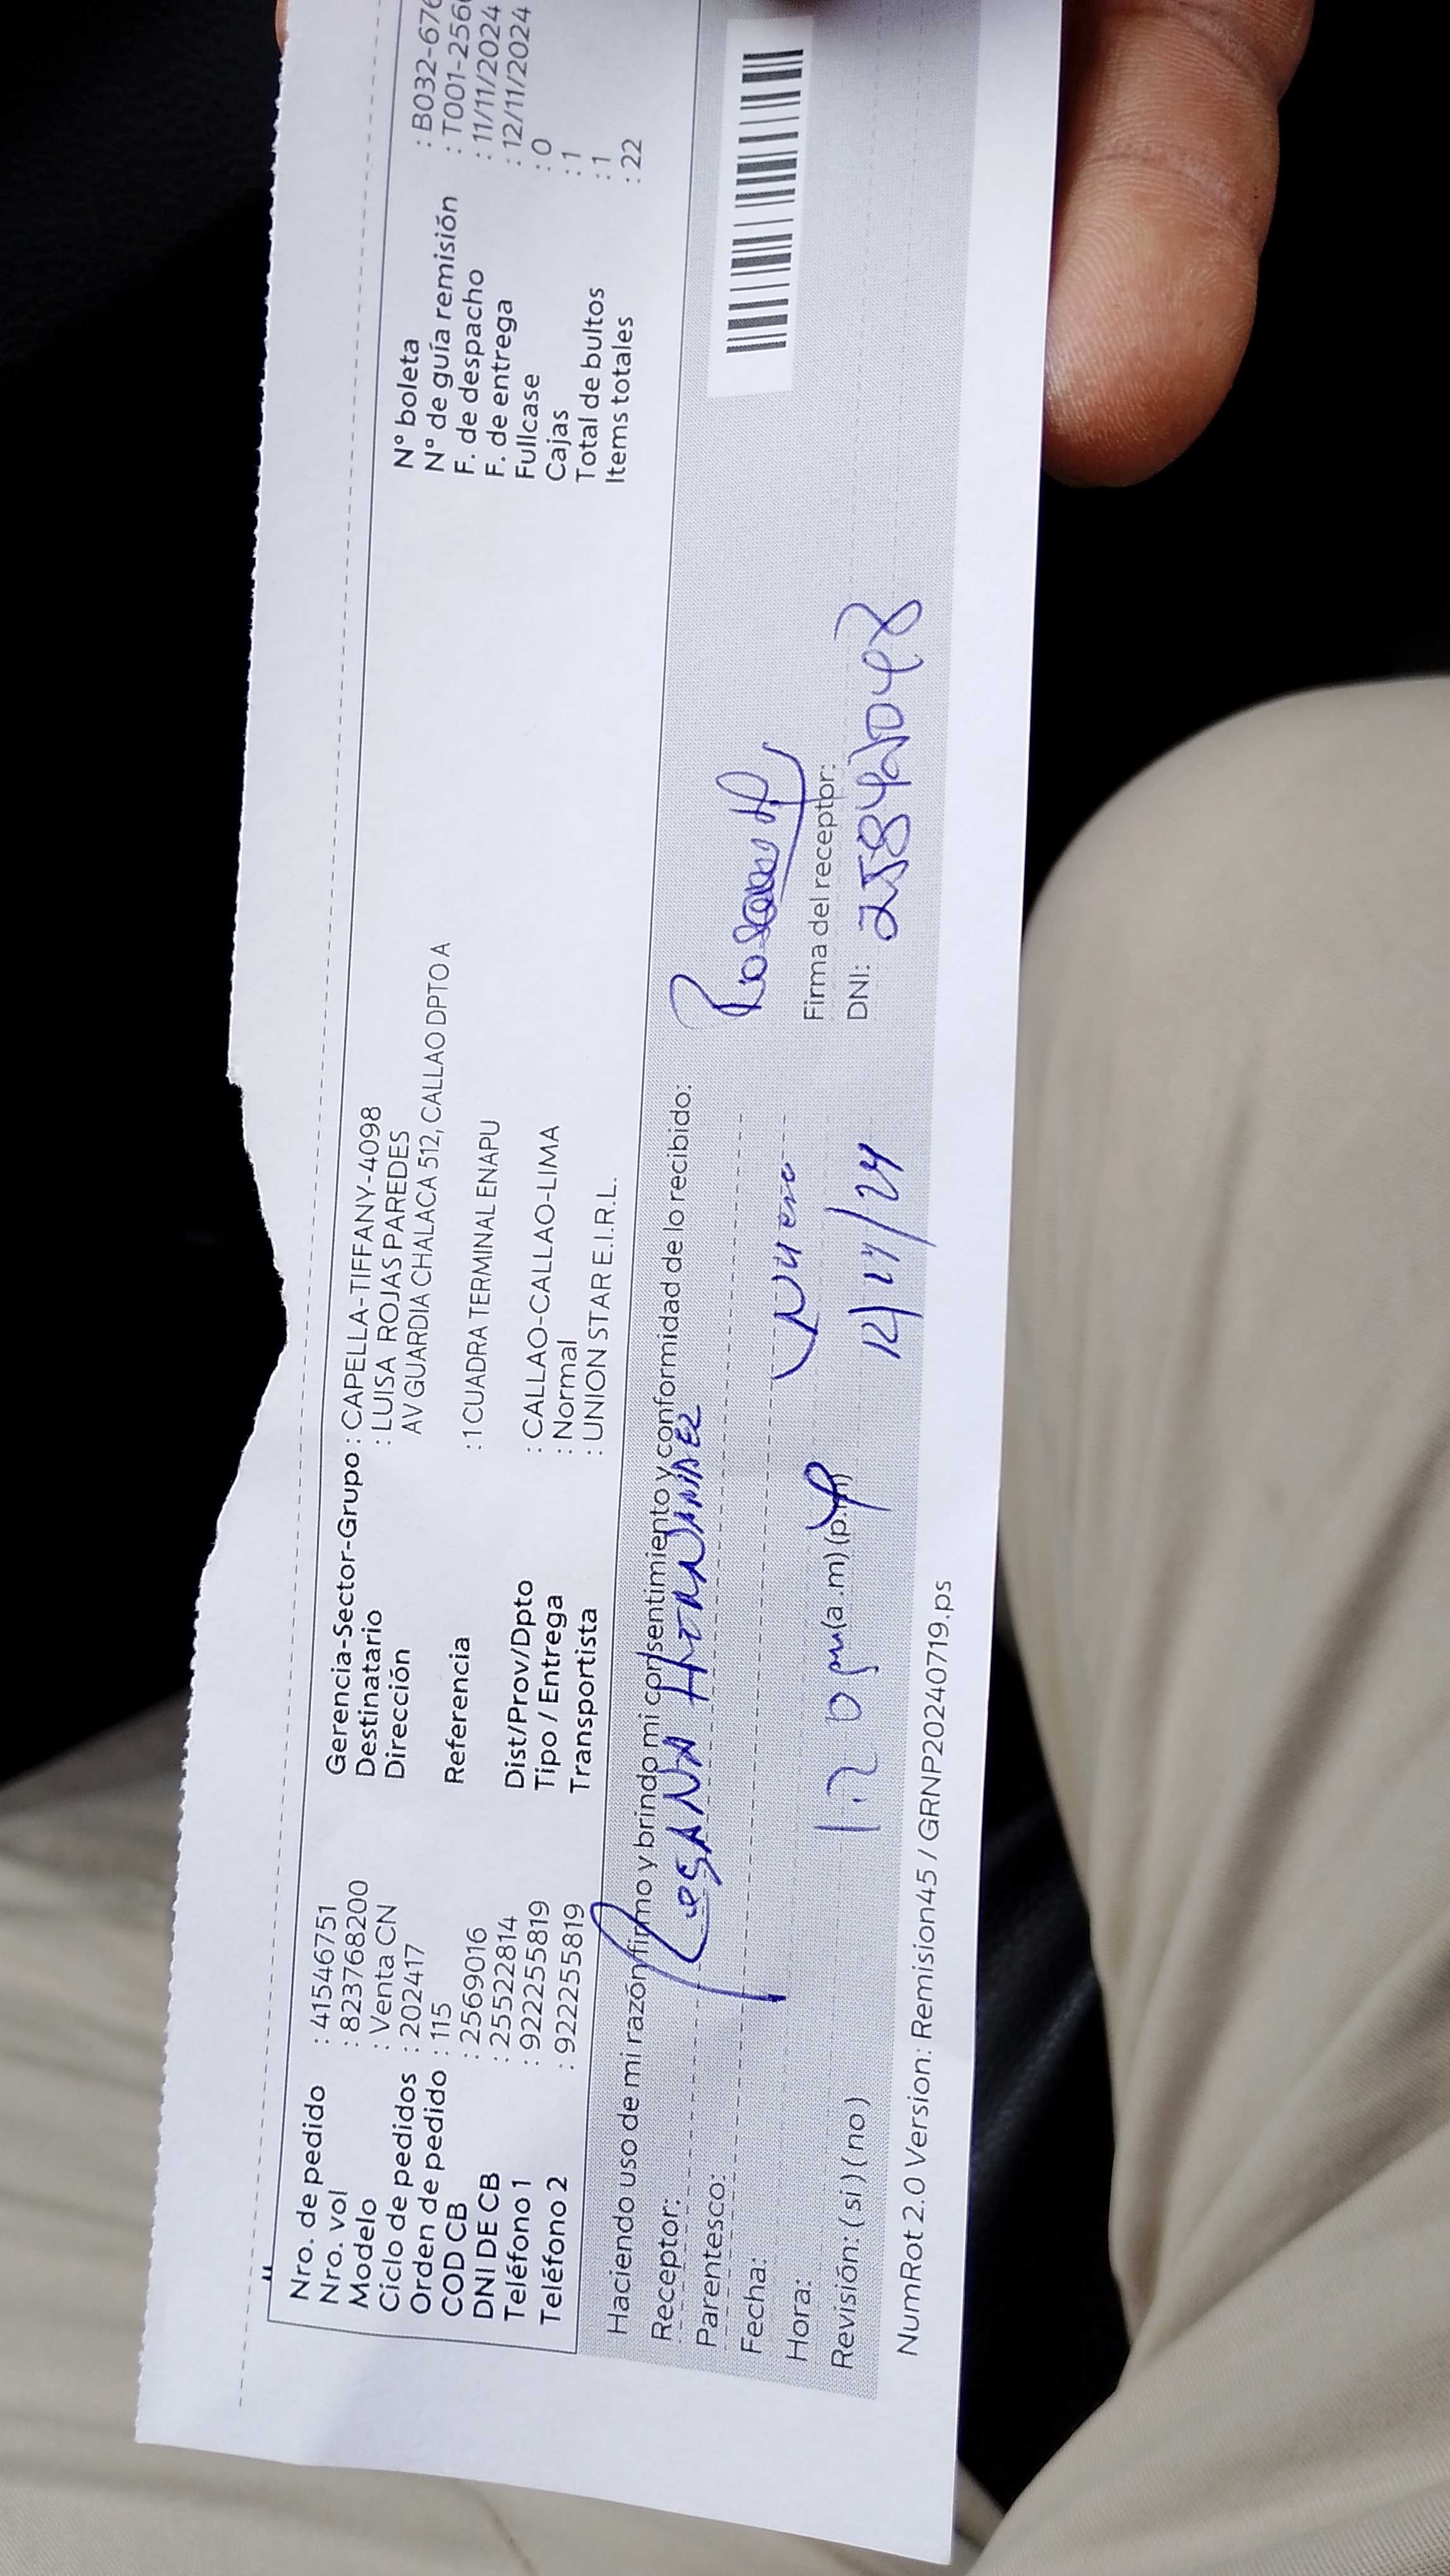 Nro. de pedido : 41546751
Nro. vol : 8237768200
Modelo : Venta CN
Ciclo de pedidos : 202417
Orden de pedido : 115
COD CB : 2569016
DNI DE CB : 25522814
Teléfono 1 : 922255819
Teléfono 2 : 922255819
Gerencia-Sector-Grupo : CAPELLA-TIFFANY-4098
Destinatario : LUISA ROJAS PAREDES
Dirección AV GUARDIA CHALACA 512, CALLAO DPTO A
Referencia : 1 CUADRA TERMINAL ENAPU
Dist/Prov/Dpto : CALLAO-CALLAO-LIMA
Tipo / Entrega : Normal
Transportista : UNION STAR E.I.R.L.
N° boleta : B032-676
N° de guía remisión : T001-256
F. de despacho : 11/11/2024
F. de entrega : 12/11/2024
Fullcase : 0
Cajas : 1
Total de bultos : 1
Items totales : 22
Haciendo uso de mi razón firmo y brindo mi consentimiento y conformidad de lo recibido:
Receptor:
Parentesco:
Fecha:
Hora: (a.m) (p.m)
Revisión: (si) (no)
Firma del receptor:
DNI:
NumRot 2.0 Version: Remision45 / GRNP20240719.ps